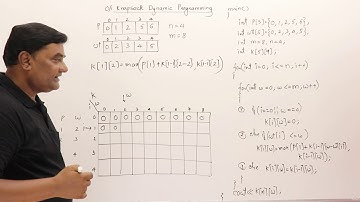 0/1 Knapsack Dynamic Programming
0 1 2 3 4
P 0 1 2 5 6
n=4
wt 0 2 3 4 5
m=8
K[1][2] = max(P[1]+K[1-1][2-2], K[1-1][2])
K
w
0 1 2 3 4 5 6 7 8
P w 0 0 0 0 0 0 0 0 0 0
1 2 0 0
main()
{
int P[5]={0,1,2,5,6};
int wt[5]={0,2,3,4,5};
int m=8, n=4;
int K[5][9];
for(int i=0; i<=n; i++)
{
for(int w=0; w<=m; w++)
{
if(i==0||w==0)
K[i][w]=0;
else if(wt[i]<=w)
K[i][w]=max(P[i]+K[i-1][w-wt[i]],
K[i-1][w]);
else K[i][w]=K[i-1][w];
}
}
cout<<K[n][w];